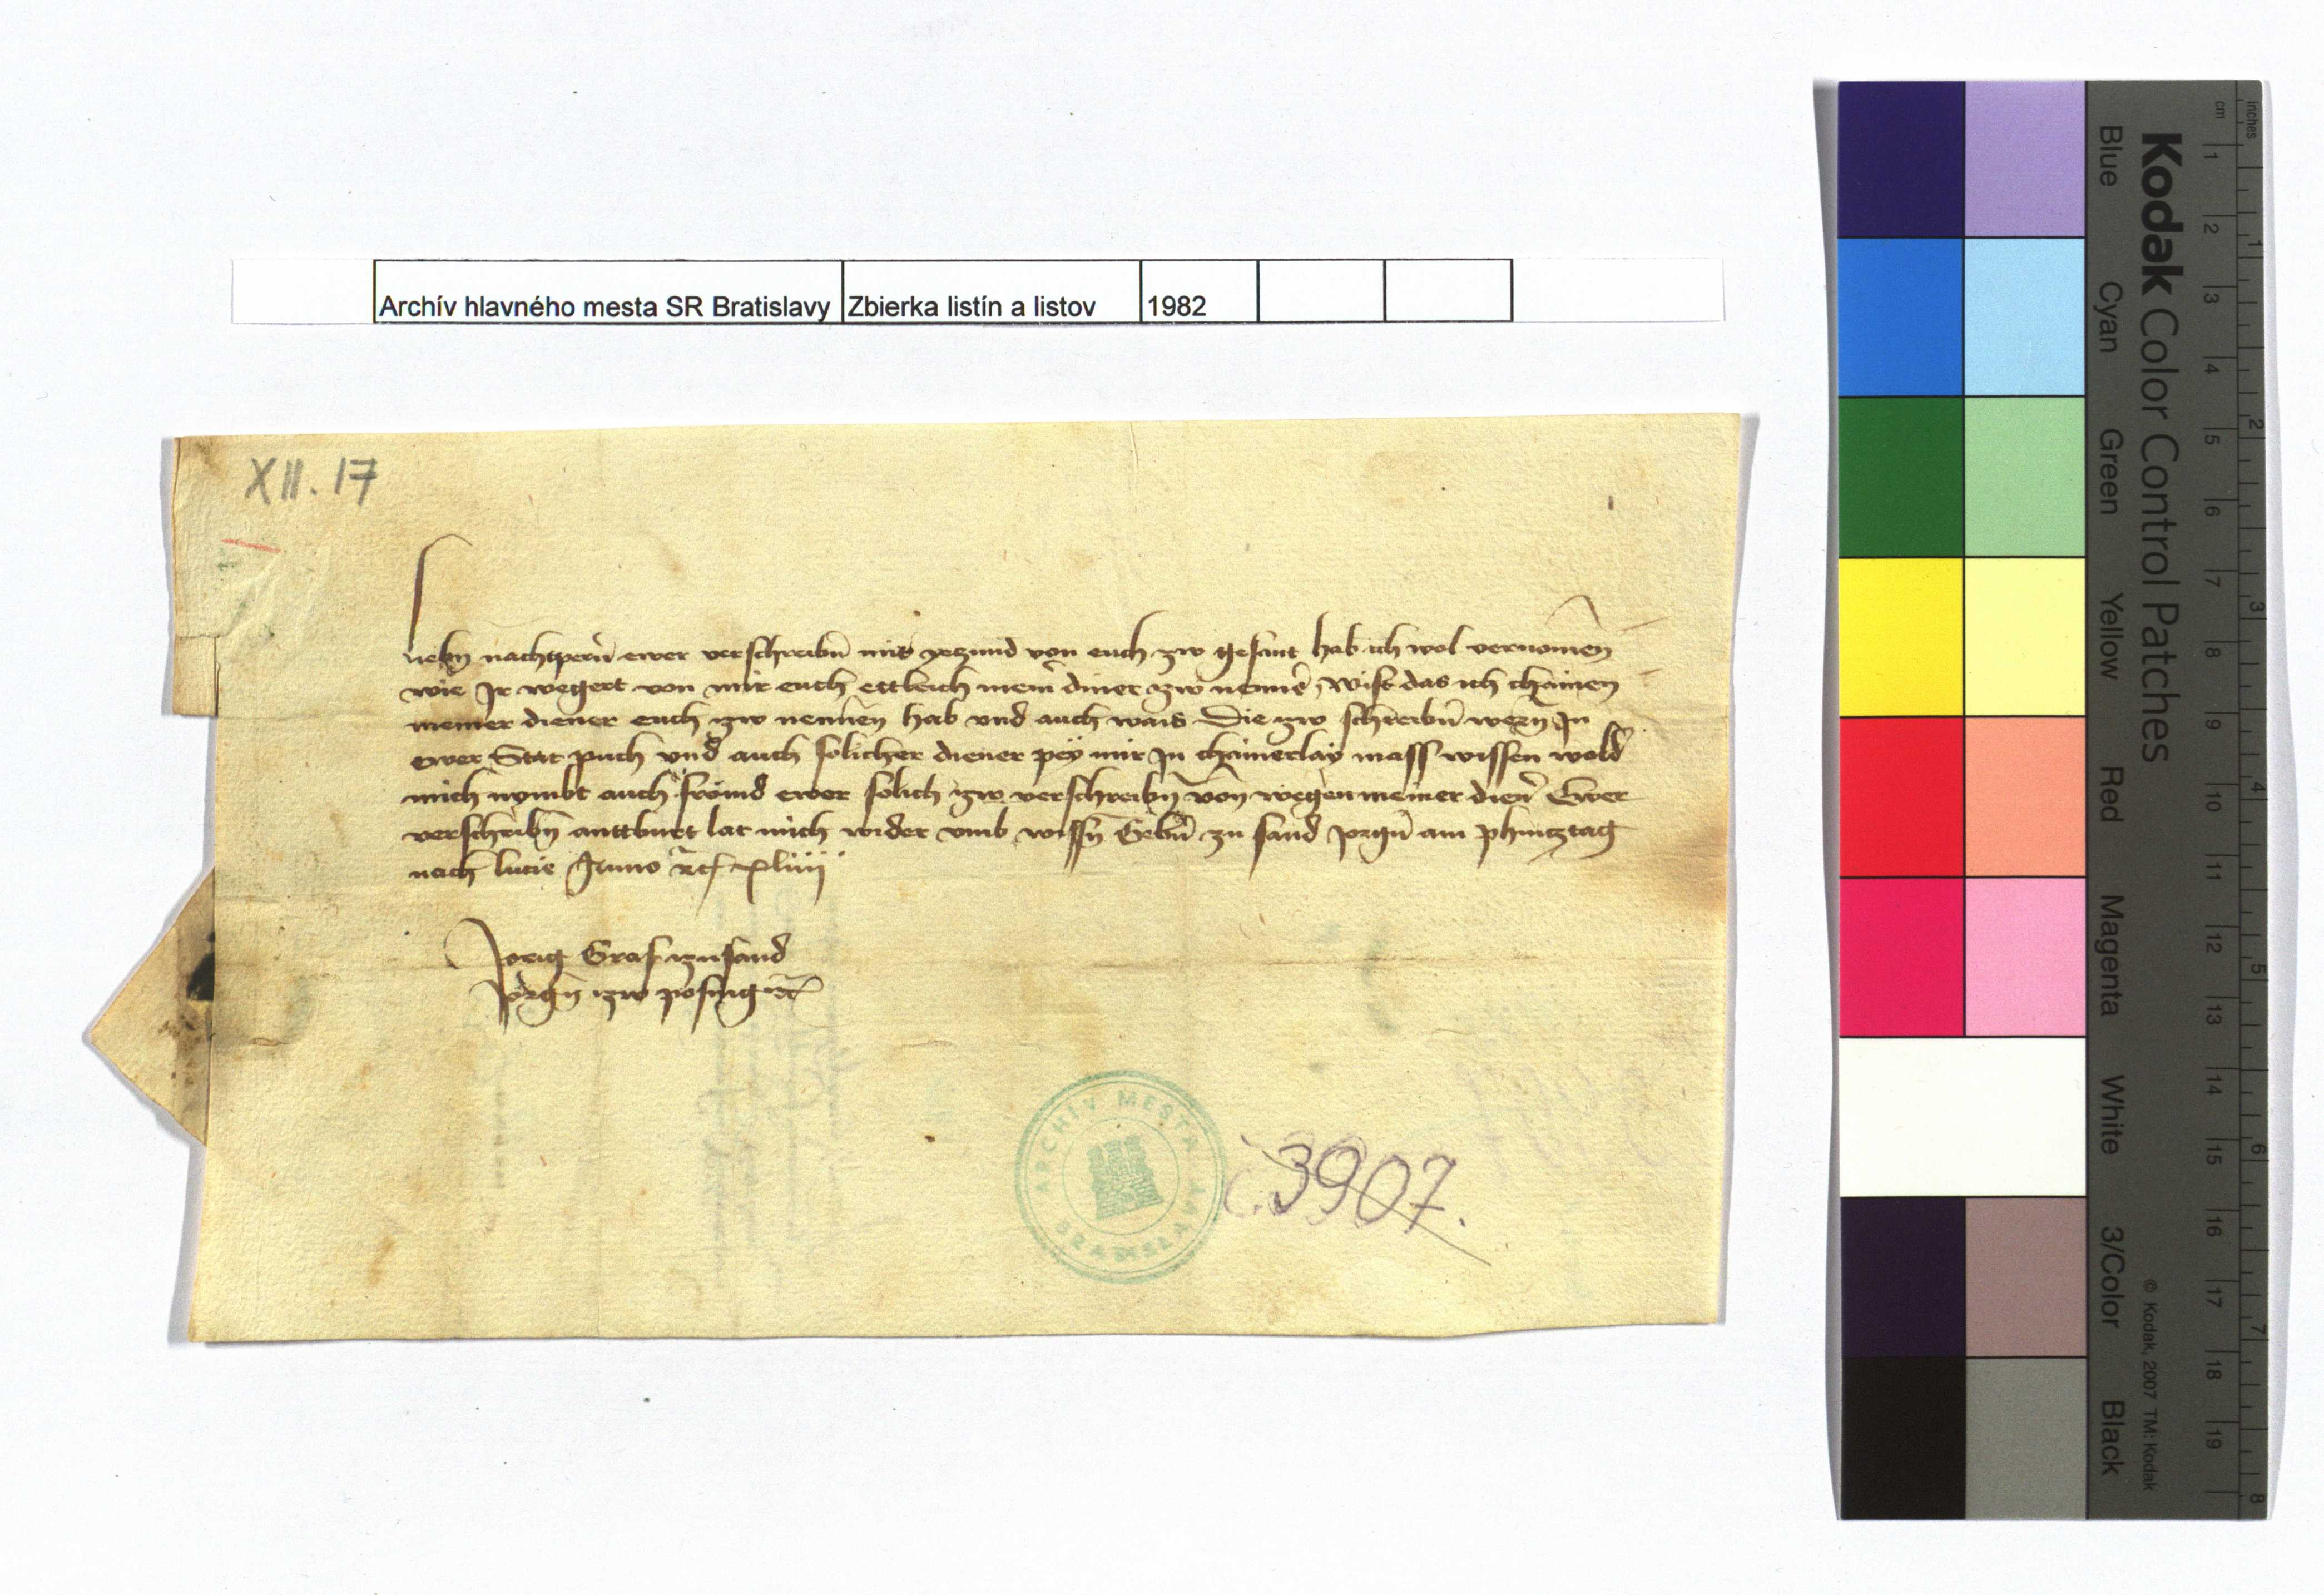 Archív hlavného mesta SR Bratislavy Zbierka listín a listov 1982
XII. 17
Liebn nachtpern̄ ewer verschreibn̄ mir yezund von euch zw gesant hab ich wol vernomen
wie Jr wegert von mir euch ettleich mein̄ diner zw nennē, wist das ich chainen
meiner diener euch zw nennen hab vnd auch wais Die zw schreibn̄ wern̄ Jn
ewer Stat puch vnd auch solicher diener pey mir Jn chainerlay mass wissen wold
mich nymbt auch frömd ewer solich zw verschreibn̄ von wegen meiner dien̄ Ewer
verschreibn̄ anttburt lat mich wider vmb wissn̄ Gebn̄ zu sand Jorgn̄ am phincztag
nach lucie Anno etc xliiii
Jorig Graf zu sand
Jörgn̄ zw posing etc
ARCHÍV MESTA BRATISLAVY
č. 3907.
Kodak Color Control Patches
Blue Cyan Green Yellow Red Magenta White 3/Color Black
cm 1 2 3 4 5 6 7 8 9 10 11 12 13 14 15 16 17 18 19
inches 1 2 3 4 5 6 7 8
© Kodak, 2007 TM: Kodak